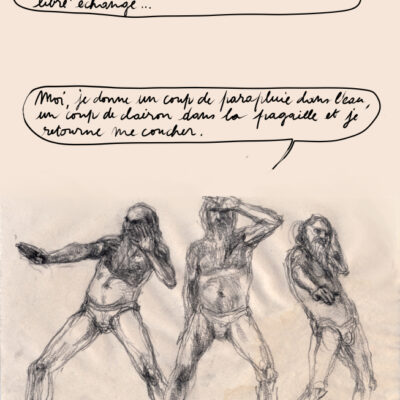 libre échange...
Moi, je donne un coup de parapluie dans l'eau,
un coup de clairon dans la pagaille et je
retourne me coucher.